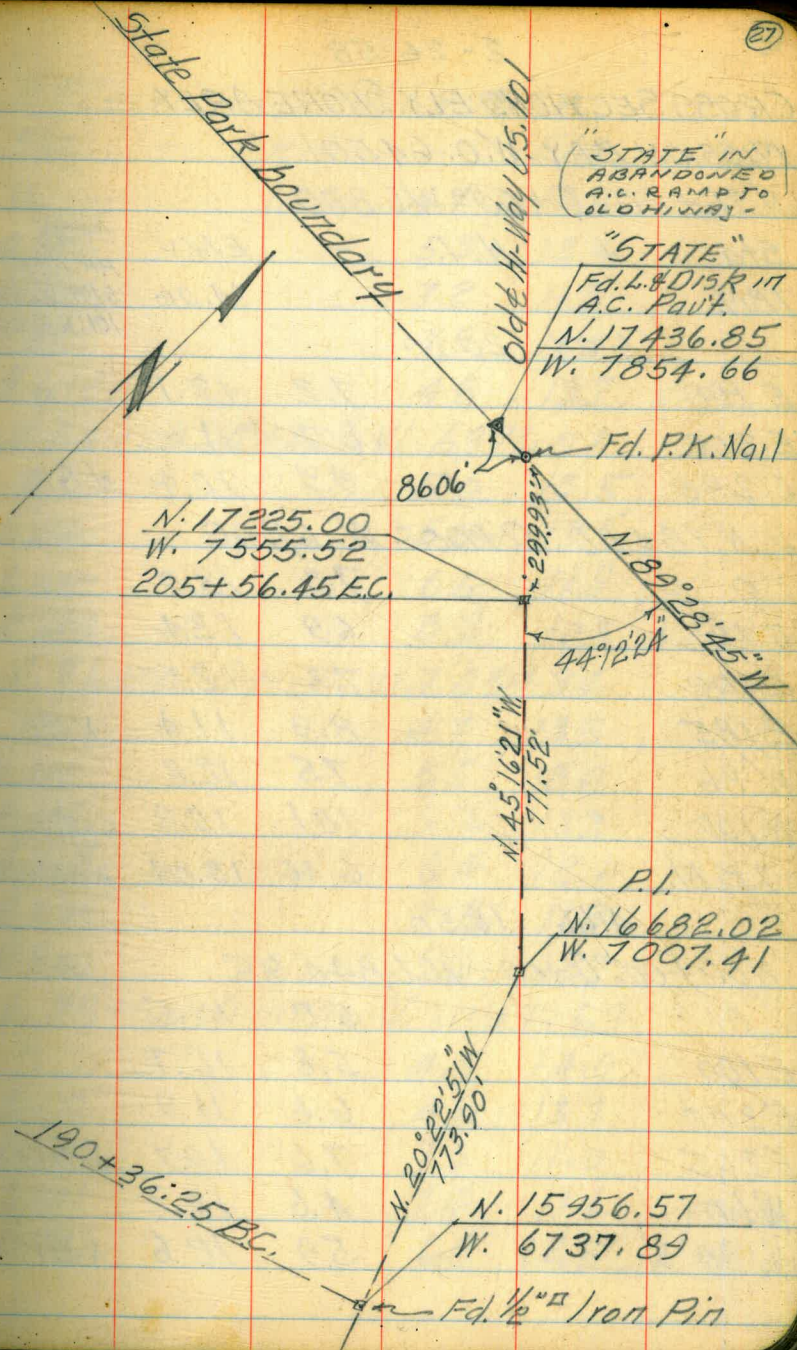 27
State Park boundary
Old ℄ Hi-Way U.S. 101
("STATE" IN
ABANDONED
A.C. RAMP TO
OLD HIWAY-)
"STATE"
Fd. L.&Disk in
A.C. Pav't.
N. 17436.85
W. 7854.66
N
Fd. P.K. Nail
86.06'
+299.93'±
N. 17225.00
W. 7555.52
205+56.45 E.C.
N. 89°28'45" W
44°12'24"
N. 45°16'21" W
771.52'
P.I.
N. 16682.02
W. 7007.41
N. 20°22'51" W
773.90'
190+36.25 B.C.
N. 15956.57
W. 6737.89
Fd. 1/2"□ Iron Pin